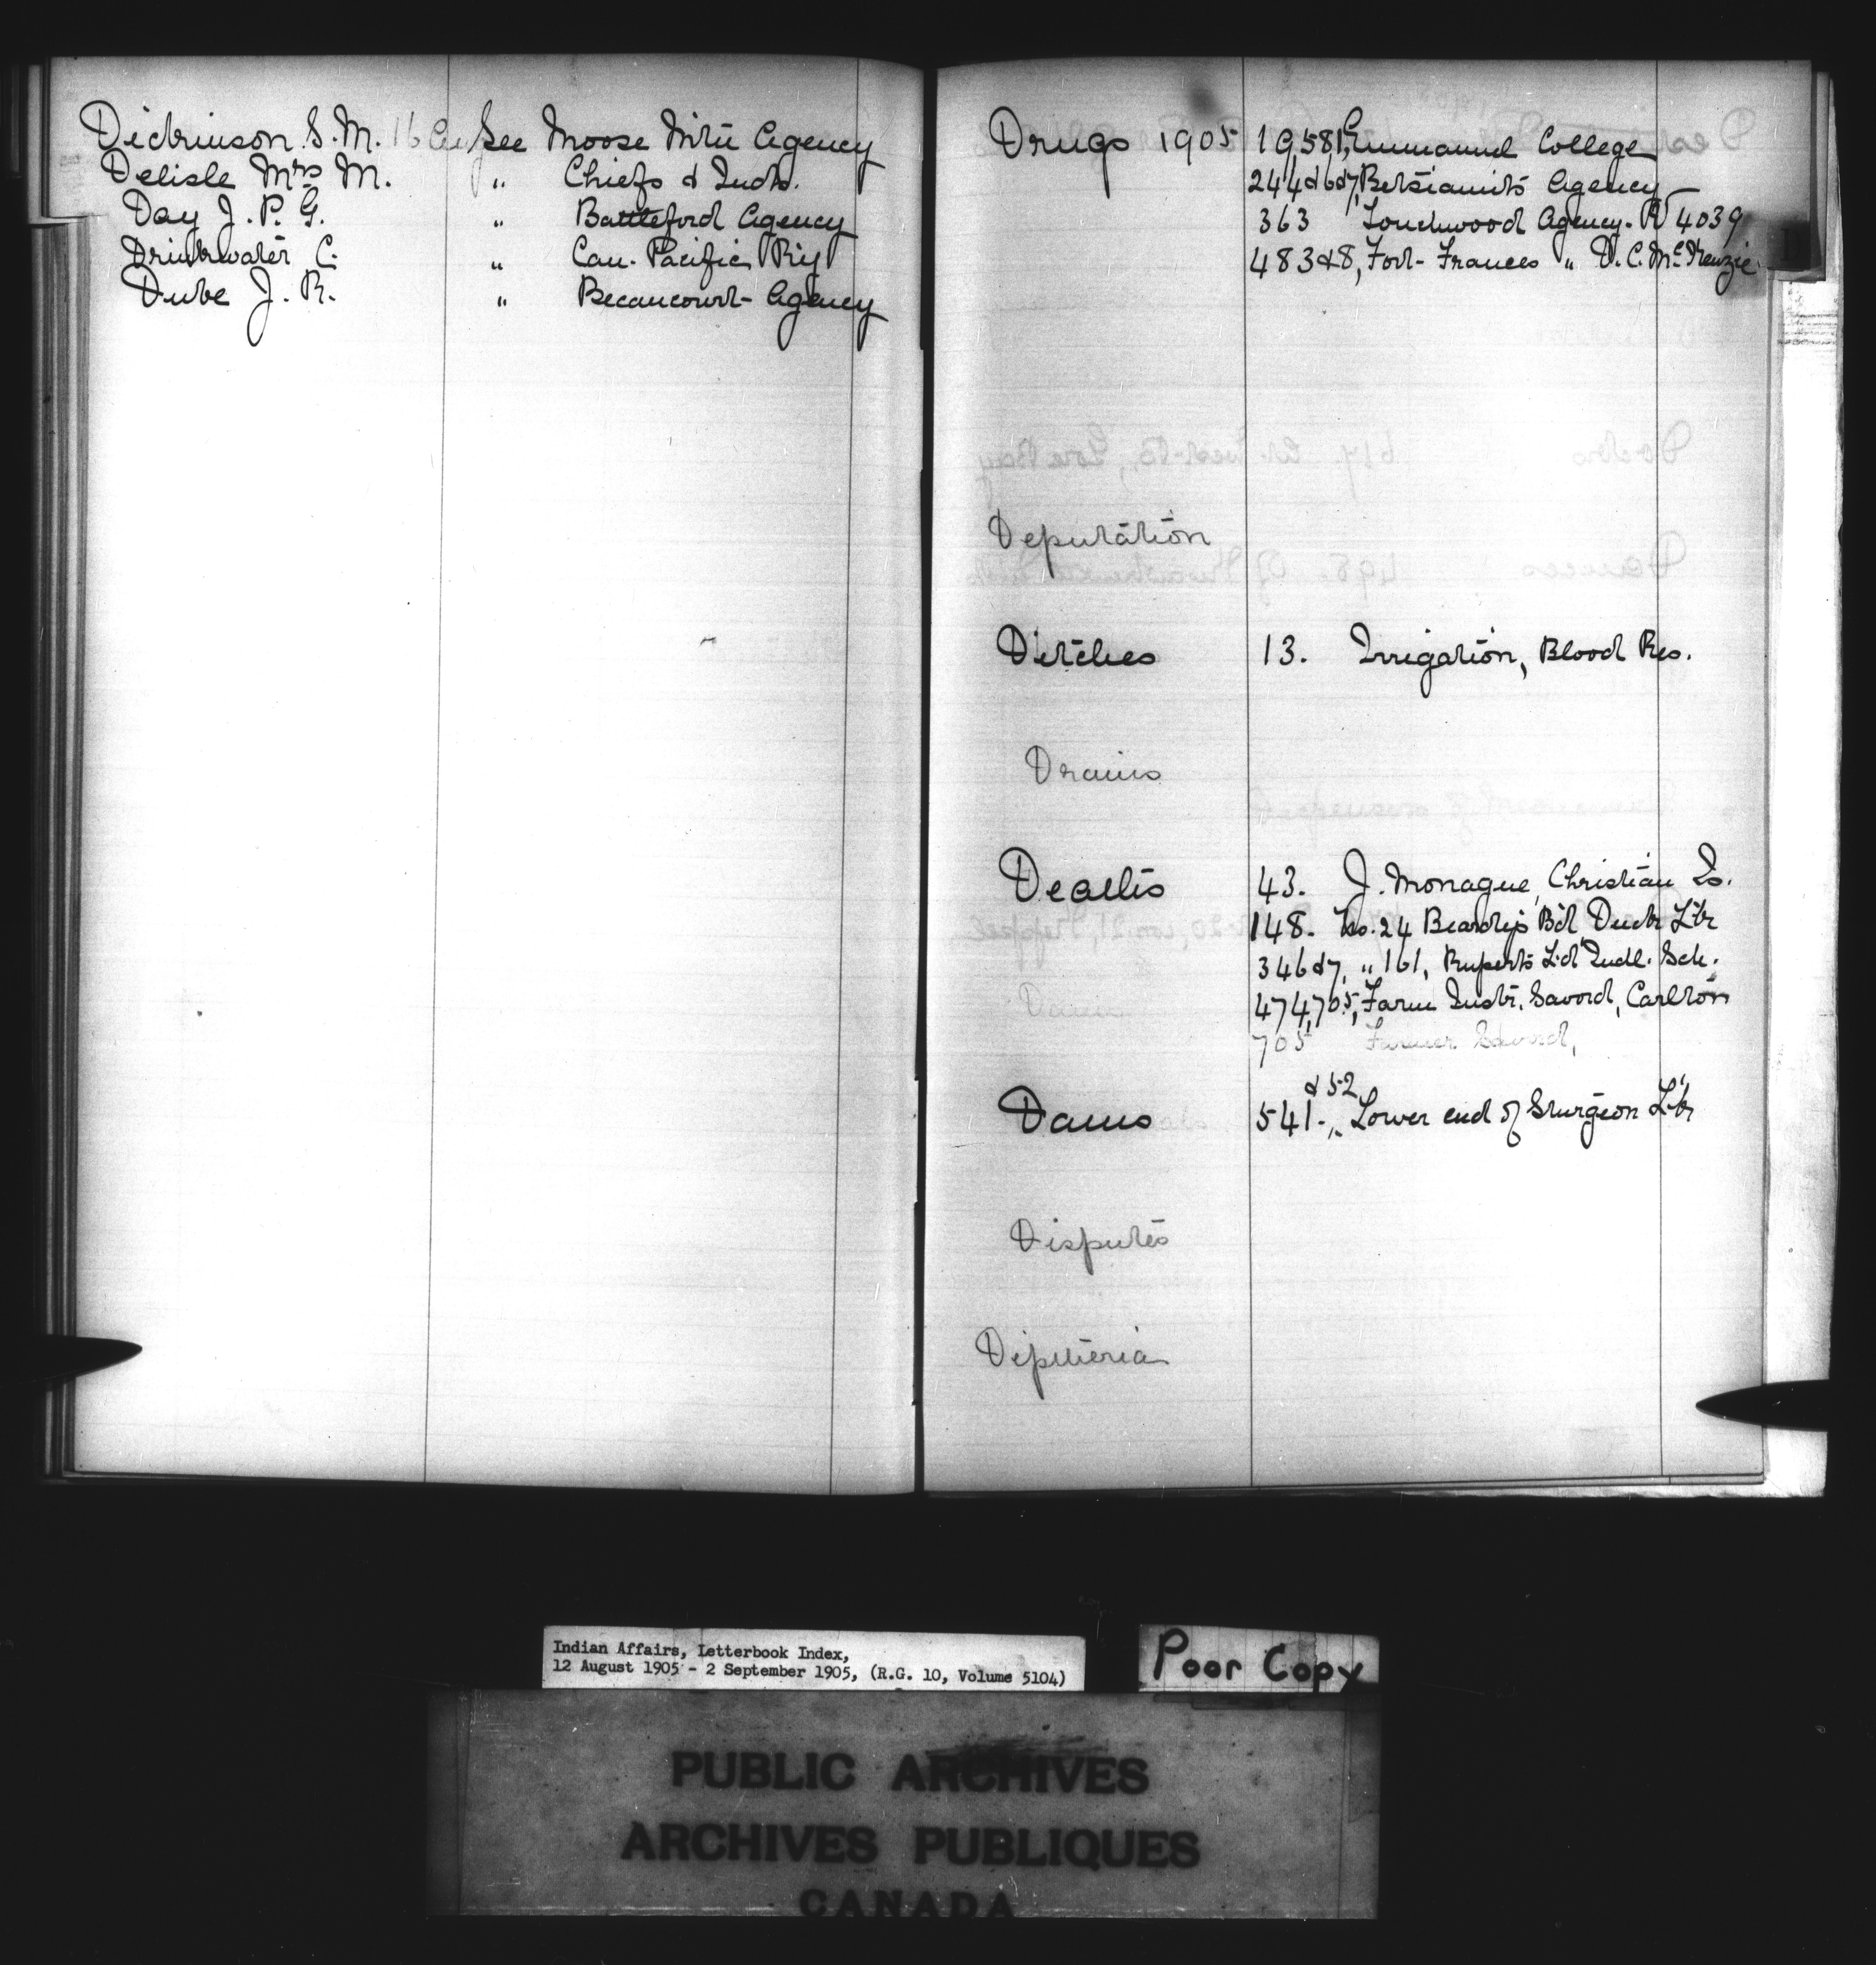 Dickinson S. M. See Moose Mtn Agency
Delisle Mrs M. " Chiefs & Inds.
Day J. P. G. " Battleford Agency
Drinkwater C. " Can. Pacific Ry
Dube J. R. " Becancourt Agency
Drugs 1905 195811, Emmanuel College
244 & 6 & 7, Betsiamits Agency
363 Touchwood Agency. R 4039
483 & 8, Fort Frances " D. C. McKenzie
Deputation
Ditches 13. Irrigation, Blood Res.
Drains
Deaths 43. J. Monague, Christian Is.
148. No. 24 Beardys Bd, Duck Lk
346 & 7, " 161, Ruperts Ld Indl. Sch.
474, 705, Farm Instr. Savord, Carlton
Dam 705 Farmer Savord,
& 52
Dams 541., Lower end of Sturgeon Lk
Disputes
Diptheria
D
Indian Affairs, Letterbook Index,
12 August 1905 - 2 September 1905, (R.G. 10, Volume 5104)
Poor Copy
PUBLIC ARCHIVES
ARCHIVES PUBLIQUES
CANADA